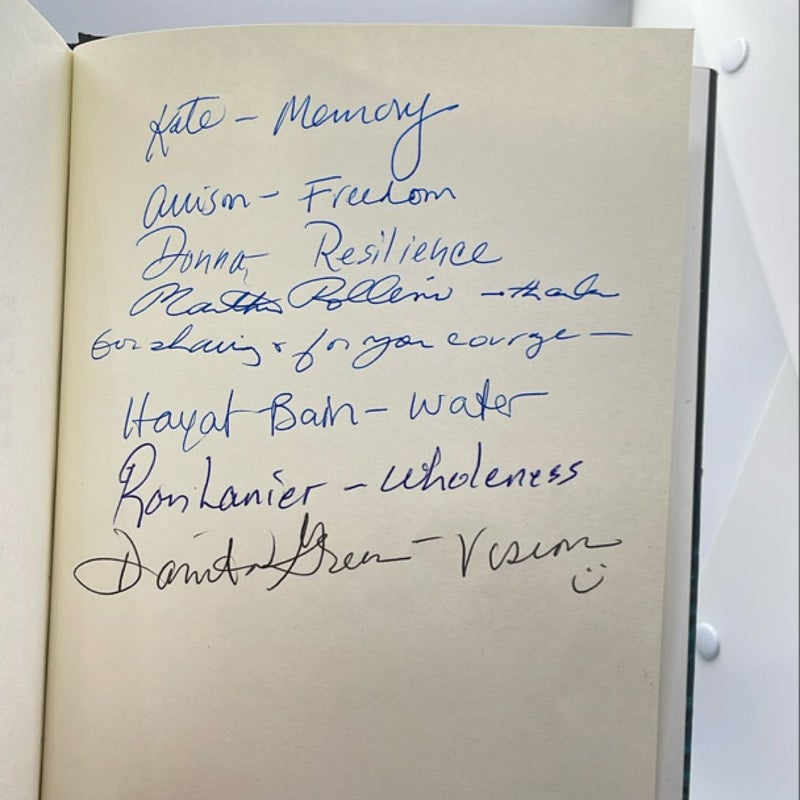 Kate – Memory
Allison – Freedom
Donna, Resilience
Martha Rollins – thanks
for sharing & for your courage –
Hayat Bain – Water
Ron Lanier – Wholeness
Danita Green – Vision